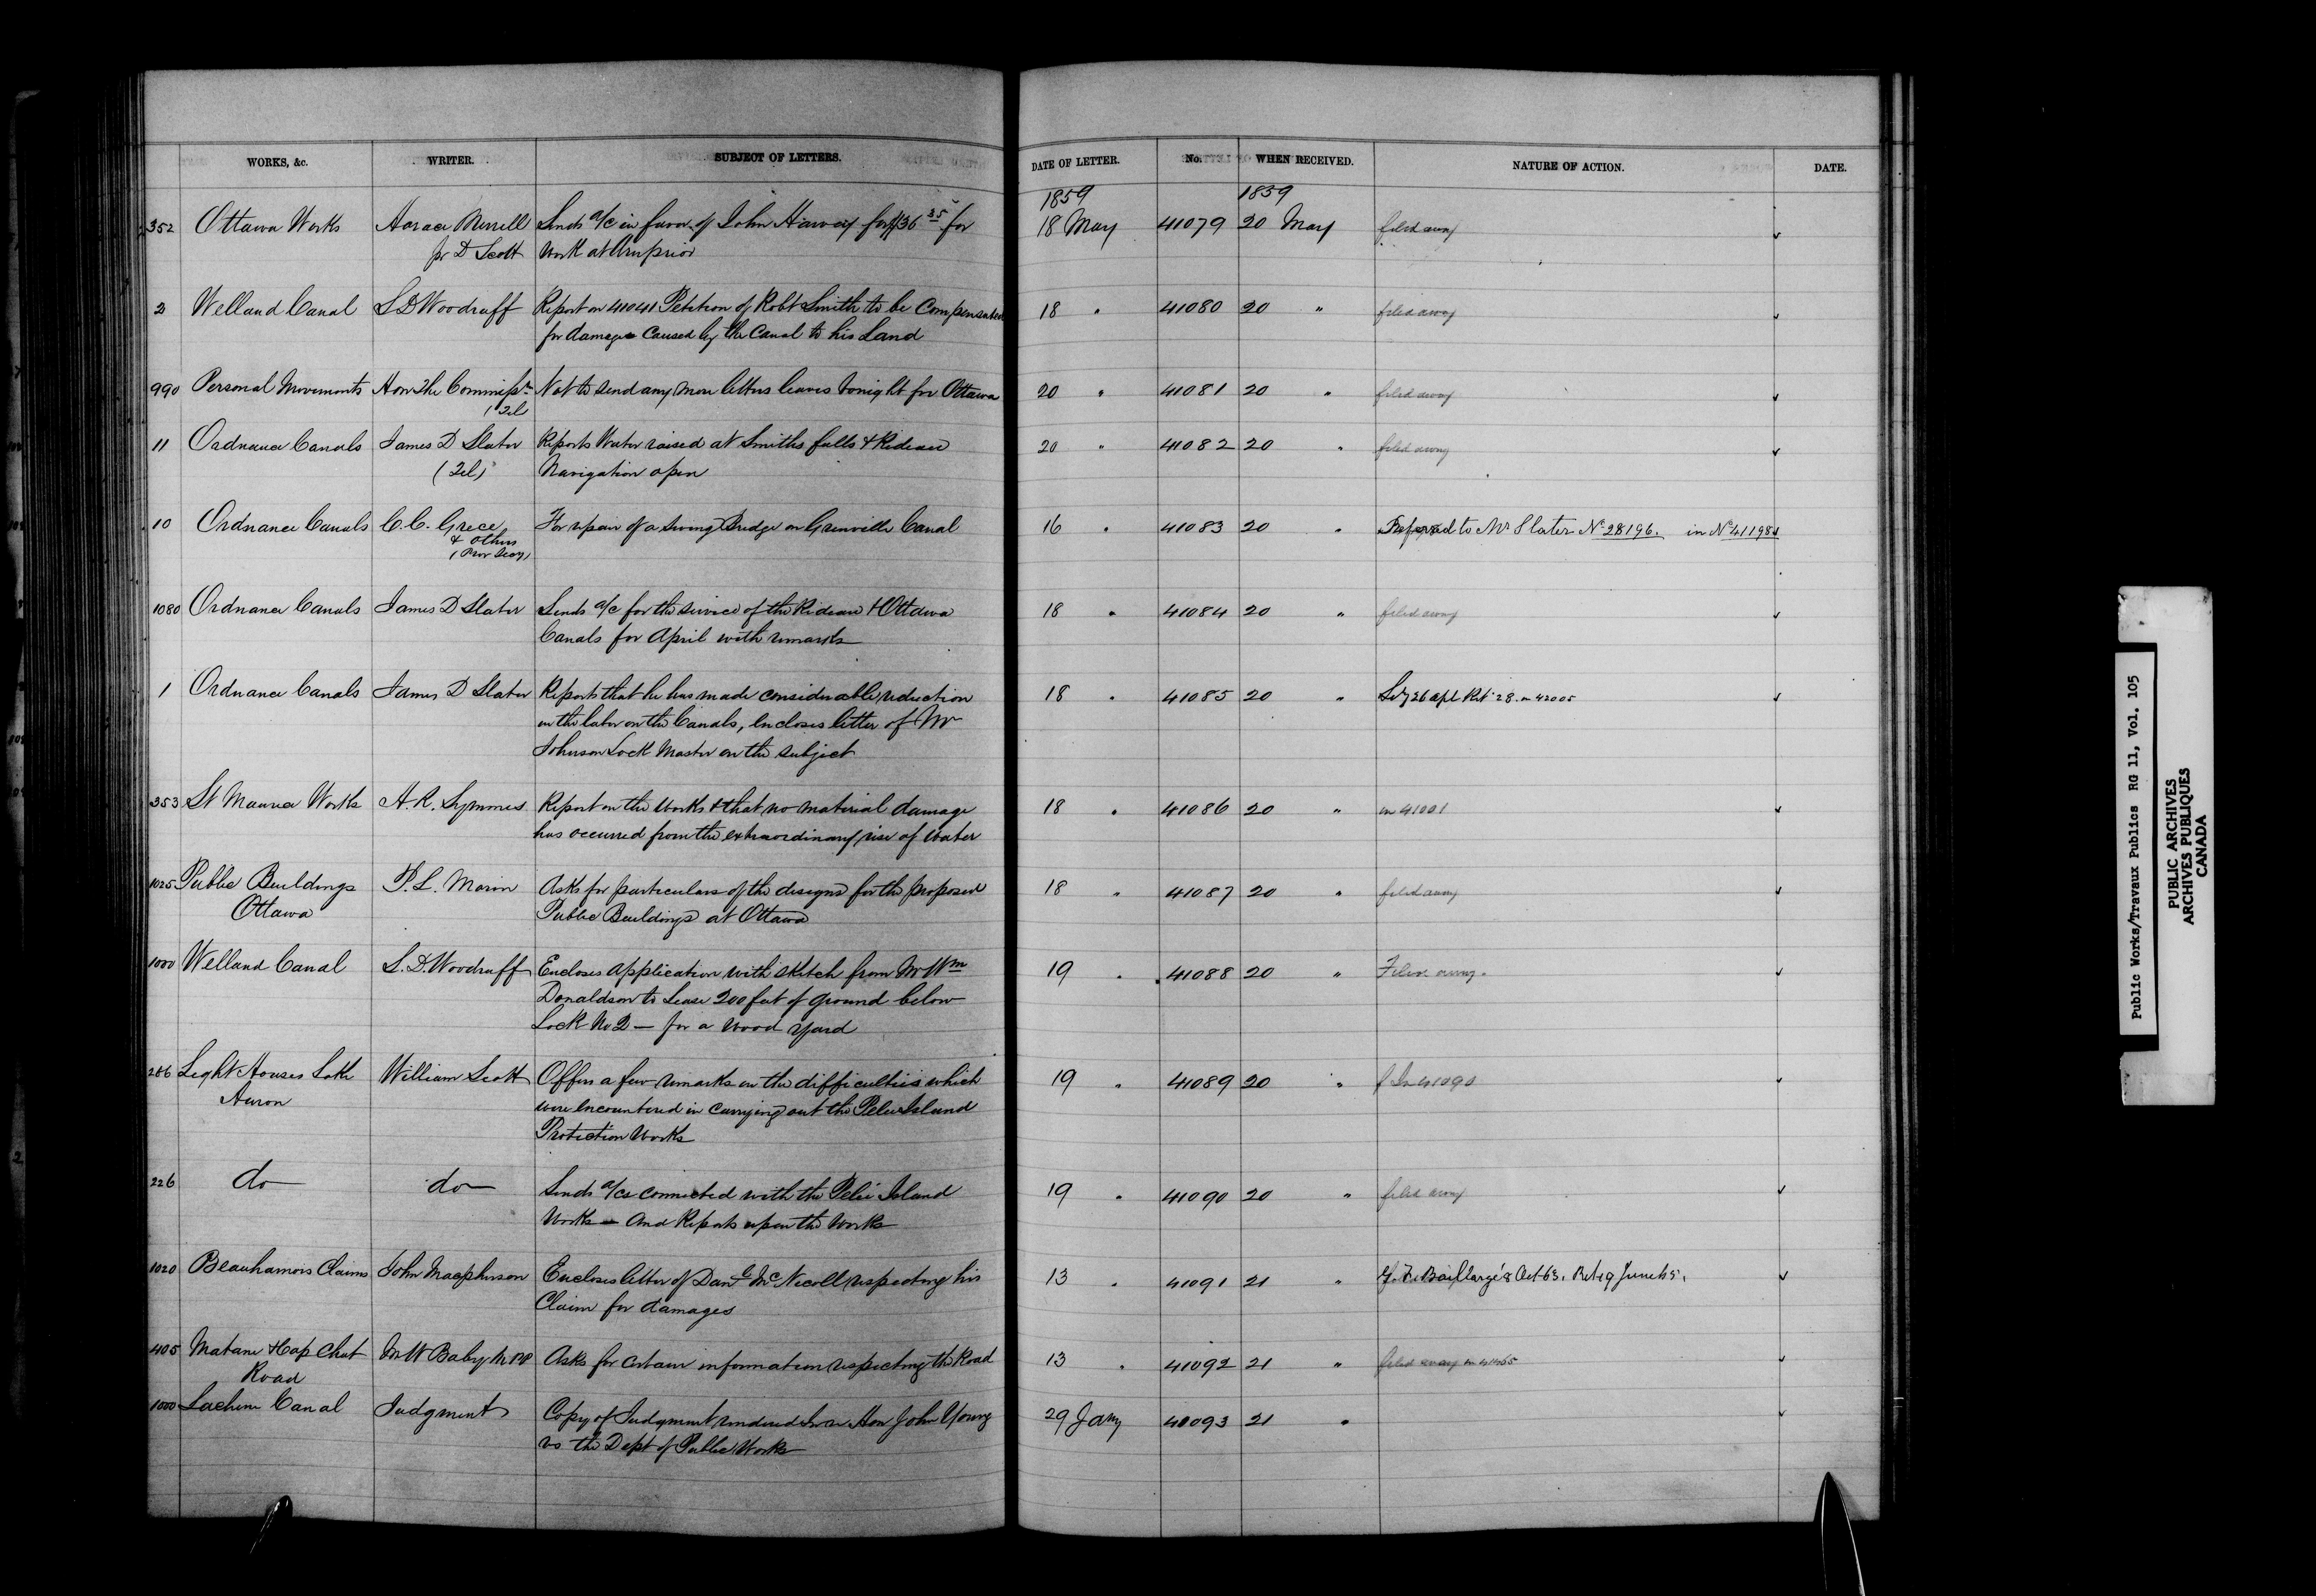 WORKS, &c. WRITER. SUBJECT OF LETTERS. DATE OF LETTER. No. WHEN RECEIVED. NATURE OF ACTION. DATE.
1859 1859
352 Ottawa Works Horace Merrill Sends a/c in favor of John Harvey for $136 35 for 18 May 41079 20 May filed away
pr D Scott Work at Arnprior
2 Welland Canal S D Woodruff Report on 41041 Petition of Robt Smith to be Compensated 18 " 41080 20 " filed away
for damage caused by the Canal to his Land
990 Personal Movements Hon The Commissr Not to send any more letters leaves tonight for Ottawa 20 " 41081 20 " filed away
(Tel)
11 Ordnance Canals James D Slater Reports Water raised at Smiths falls & Rideau 20 " 41082 20 " filed away
(Tel) Navigation open
10 Ordnance Canals C.C. Grece For repair of a Swing Bridge on Grenville Canal 16 " 41083 20 " Referred to Mr Slater No 28196. in No 41198
& others
(Prov Secy)
1080 Ordnance Canals James D Slater Sends a/c for the service of the Rideau & Ottawa 18 " 41084 20 " filed away
Canals for April with remarks
1 Ordnance Canals James D Slater Reports that he has made considerable reduction 18 " 41085 20 " 26 apl Ret 28. in 42005
in the labor on the Canals, encloses letter of Mr
Johnson Lock Master on the subject
353 St Maurice Works A.R. Symmes Report on the Works & that no material damage 18 " 41086 20 " in 41001
has occurred from the extraordinary rise of Water
1025 Public Buildings P.L. Morin Asks for particulars of the designs for the proposed 18 " 41087 20 " filed away
Ottawa Public Buildings at Ottawa
1000 Welland Canal S.D. Woodruff Encloses application with sketch from Mr Wm 19 " 41088 20 " Filed away.
Donaldson to Lease 200 feet of ground below
Lock No 2 — for a Wood yard
286 Light Houses Lake William Scott Offers a few remarks on the difficulties which 19 " 41089 20 " In 41090
Huron were encountered in carrying out the Pelee Island
Protection Works
226 do do Sends a/cs connected with the Pelee Island 19 " 41090 20 " filed away
Works — and Reports upon the Works
1020 Beauharnois Claims John Macpherson Encloses letter of Danl McNicoll respecting his 13 " 41091 21 " G.F. Baillargé 8 Oct 63. Ret 19 June 65.
Claim for damages
405 Matane & Cap Chat M W Baby M PP Asks for certain information respecting the Road 13 " 41092 21 " filed away in 41465
Road
1000 Lachine Canal Judgment Copy of Judgment rendered In re Hon John Young 29 Jany 41093 21 "
vs the Dept of Public Works
Public Works/Travaux Publics RG 11, Vol. 105
PUBLIC ARCHIVES
ARCHIVES PUBLIQUES
CANADA